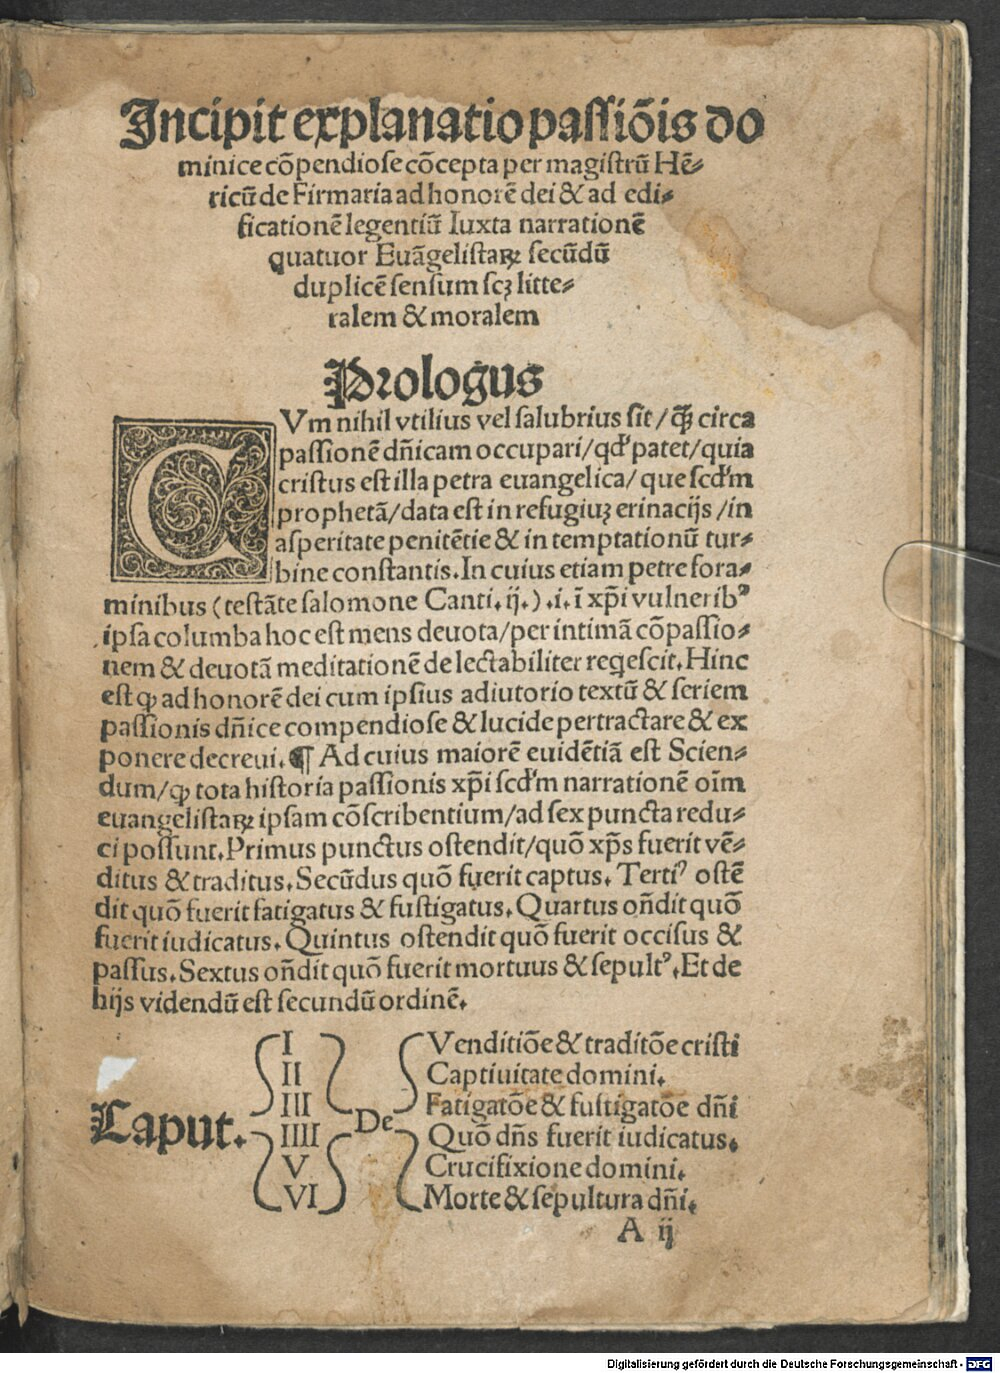 Incipit explanatio passiõis do
minice cõpendiose cõcepta per magistrũ Hẽ⸗
ricũ de Firmaria ad honorẽ dei & ad edi⸗
ficationẽ legentiũ Iuxta narrationẽ
quatuor Euãgelistaꝝ secũdũ
duplicẽ sensum scꝫ litte⸗
ralem & moralem
Prologus
CVm nihil vtilius vel salubrius sit / q̃ꝫ circa
passionẽ dñicam occupari / qđ patet / quia
cristus est illa petra euangelica / que scđm
prophetã / data est in refugiuꝫ erinacijs / in
asperitate penitẽtie & in temptationũ tur⸗
bine constantis. In cuius etiam petre fora⸗
minibus (testãte salomone Canti. ij.) .i. ĩ xp̃i vulneribꝰ
ipsa columba hoc est mens deuota / per intimã cõpassio⸗
nem & deuotã meditationẽ delectabiliter reqͥescit. Hinc
est ꝙ ad honorẽ dei cum ipsius adiutorio textũ & seriem
passionis dñice compendiose & lucide pertractare & ex
ponere decreui. ¶ Ad cuius maiorẽ euidẽtiã est Scien⸗
dum / ꝙ tota historia passionis xp̃i scđm narrationẽ oĩm
euangelistaꝝ ipsam cõscribentium / ad sex puncta redu⸗
ci possunt. Primus punctus ostendit / quõ xp̃s fuerit vẽ⸗
ditus & traditus. Secũdus quõ fuerit captus. Tertiꝰ ostẽ
dit quõ fuerit fatigatus & fustigatus. Quartus oñdit quõ
fuerit iudicatus. Quintus ostendit quõ fuerit occisus &
passus. Sextus oñdit quõ fuerit mortuus & sepultꝰ. Et de
hijs videndũ est secundũ ordinẽ.
Caput.
I
II
III
IIII
V
VI
De
Venditiõe & traditõe cristi
Captiuitate domini.
Fatigatõe & fustigatõe dñi
Quõ dñs fuerit iudicatus.
Crucifixione domini.
Morte & sepultura dñi.
A ij
Digitalisierung gefördert durch die Deutsche Forschungsgemeinschaft - DFG